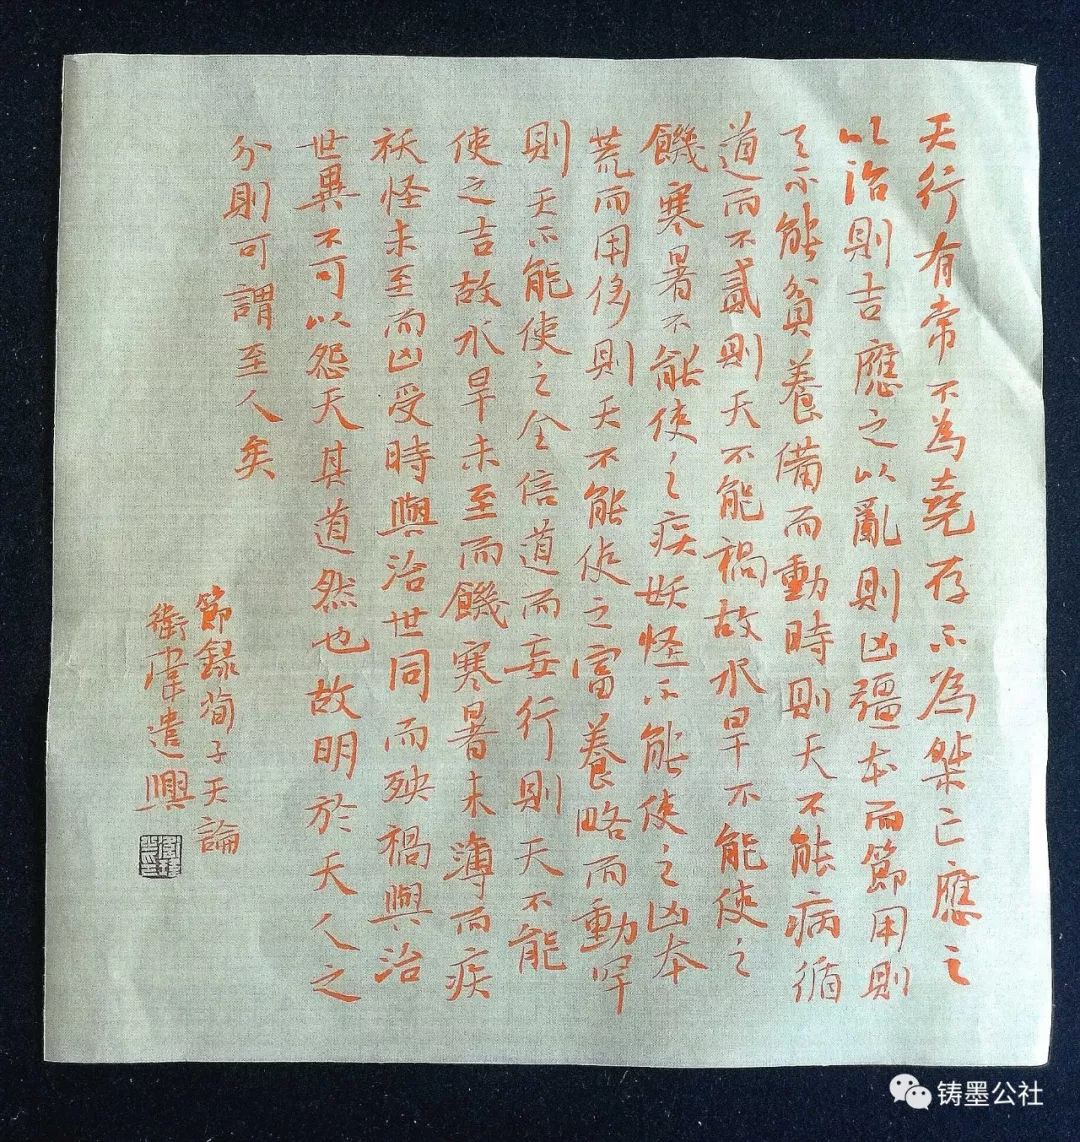 天行有常不為堯存不為桀亡應之
以治則吉應之以亂則凶彊本而節用則
天不能貧養備而動時則天不能病循
道而不貳則天不能禍故水旱不能使之
饑寒暑不能使之疾妖怪不能使之凶本
荒而用侈則天不能使之富養略而動罕
則天不能使之全倍道而妄行則天不能
使之吉故水旱未至而饑寒暑未薄而疾
祅怪未至而凶受時與治世同而殃禍與治
世異不可以怨天其道然也故明於天人之
分則可謂至人矣
節錄荀子天論
衛遣興
铸墨公社